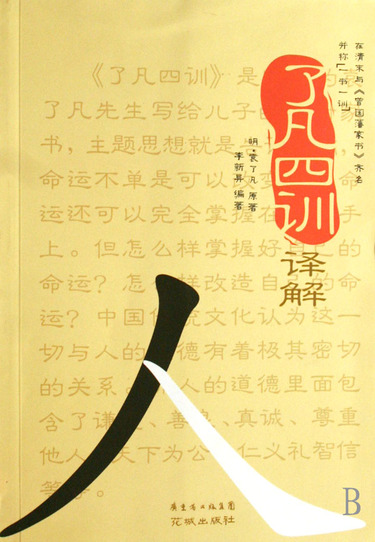 在清末与《曾国藩家书》齐名
并称「一书一训」
了凡四训
译解
明·袁了凡 原著
李新 编著
《了凡四训》是
了凡先生写给儿子 家
书，主题思想就是
命运不单是可以 命
运还可以完全掌握在 手
上。但怎么样掌握好自 的
命运？怎么样改造自 的命
运？中国传统文化认为这一
切与人的 德有着极其密切
的关系。人的道德里面包
含了谦 、善良、真诚、尊重
他人、天下为公、仁义礼智信
等等。
人
广东省出版集团
花城出版社
B